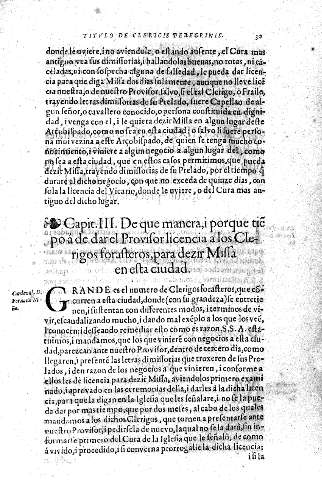 TITULO DE CLERICIS PEREGRINIS. 30
donde le uviere, i no aviendole, o estando ausente, el Cura mas
antiguo vea sus dimissorias, i hallandolas buenas, no rotas, ni cã
celadas, ni con sospecha alguna de falsedad, le pueda dar licen
cia para que diga Missa dos dias solamente. Aunque no lleve licẽcia
nuestra, o de nuestro Provisor, salvo, si es tal Clerigo, o Fraile,
trayendo letras dimissorias de su Prelado, fuere Capellan de al-
gun señor, o cavallero conocido, o persona constituida en digni
dad, i venga con el, i le quiera dezir Missa en algun lugar deste
Arçobispado, como no sea en esta ciudad; o salvo si fuere perso
na mui vezina a este Arçobispado, de quien se tenga mucho co-
nocimiento, i viniere a algun negocio a algun lugar del, como
no sea a esta ciudad, que en estos casos permitimos, que pueda
dezir Missa, trayendo dimissorias de su Prelado, por el tiempo q̃
durare el dicho negocio, con que no exceda de quinze dias, con
sola la licencia del Vicario, donde le uviere, o del Cura mas an-
tiguo del dicho lugar.
Capit. III. De que manera, i porque tiẽ
po à de dar el Provisor licencia a los Cle-
rigos forasteros, para dezir Missa
en esta ciudad.
GRANDE es el numero de Clerigos forasteros, que
curren a esta ciudad, donde (con su grandeza) se entretie
nen, i sustentan con diferentes modos, i terminos de vi-
vir, escandalizando mucho, i dando mal exẽplo a los que los veẽ,
deseando remediar esto como es razon. S.S.A. esta-
tuimos, i mandamos, que los que vinierẽ con negocios a esta ciu
dad, parezcan ante nuestro Provisor, dentro de tercero dia, como
llegaren, i presentẽ las letras dimissorias que truxeren de sus Pre
lados, i den razon de los negocios a que vinieren, i conforme a
ellos les de licencia para dezir Missa, aviendolos primero exami
nado, i aprovado en las ceremonias della, i darles à la dicha licen
cia, para que la digan en la Iglesia que les señalare, i no se la pue-
da dar por mas tiempo, que por dos meses, al cabo de los quales
mandamos a los dichos Clerigos, que tornen a presentarse ante
nuestro Provisor, i pedirsela de nuevo, la qual no se la darà, sin in
formarse primero del Cura de la Iglesia que le señalò, de como
à vivido, i procedido, i si conviene prorrogalle la dicha licencia;
i si la